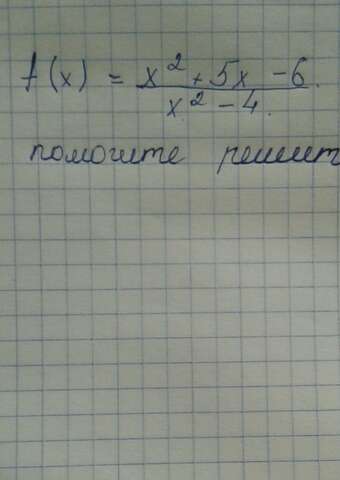 f(x) = x² + 5x - 6 / x² - 4.
помогите решит